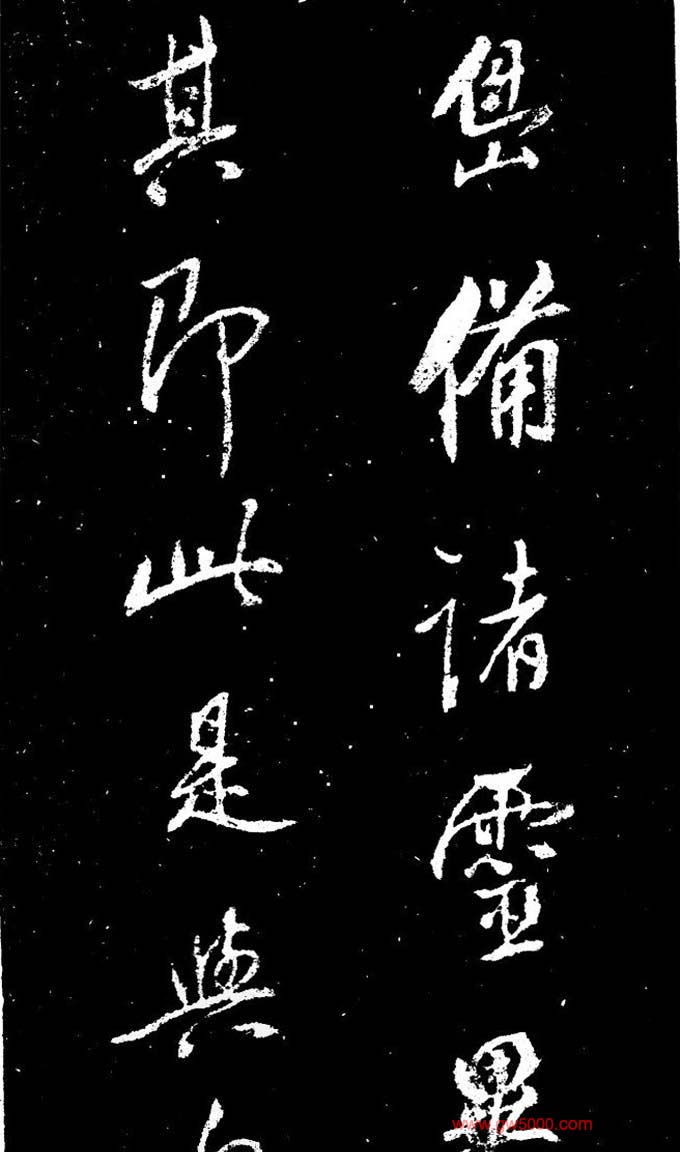 備諸靈
其即此是與
www.gw5000.com